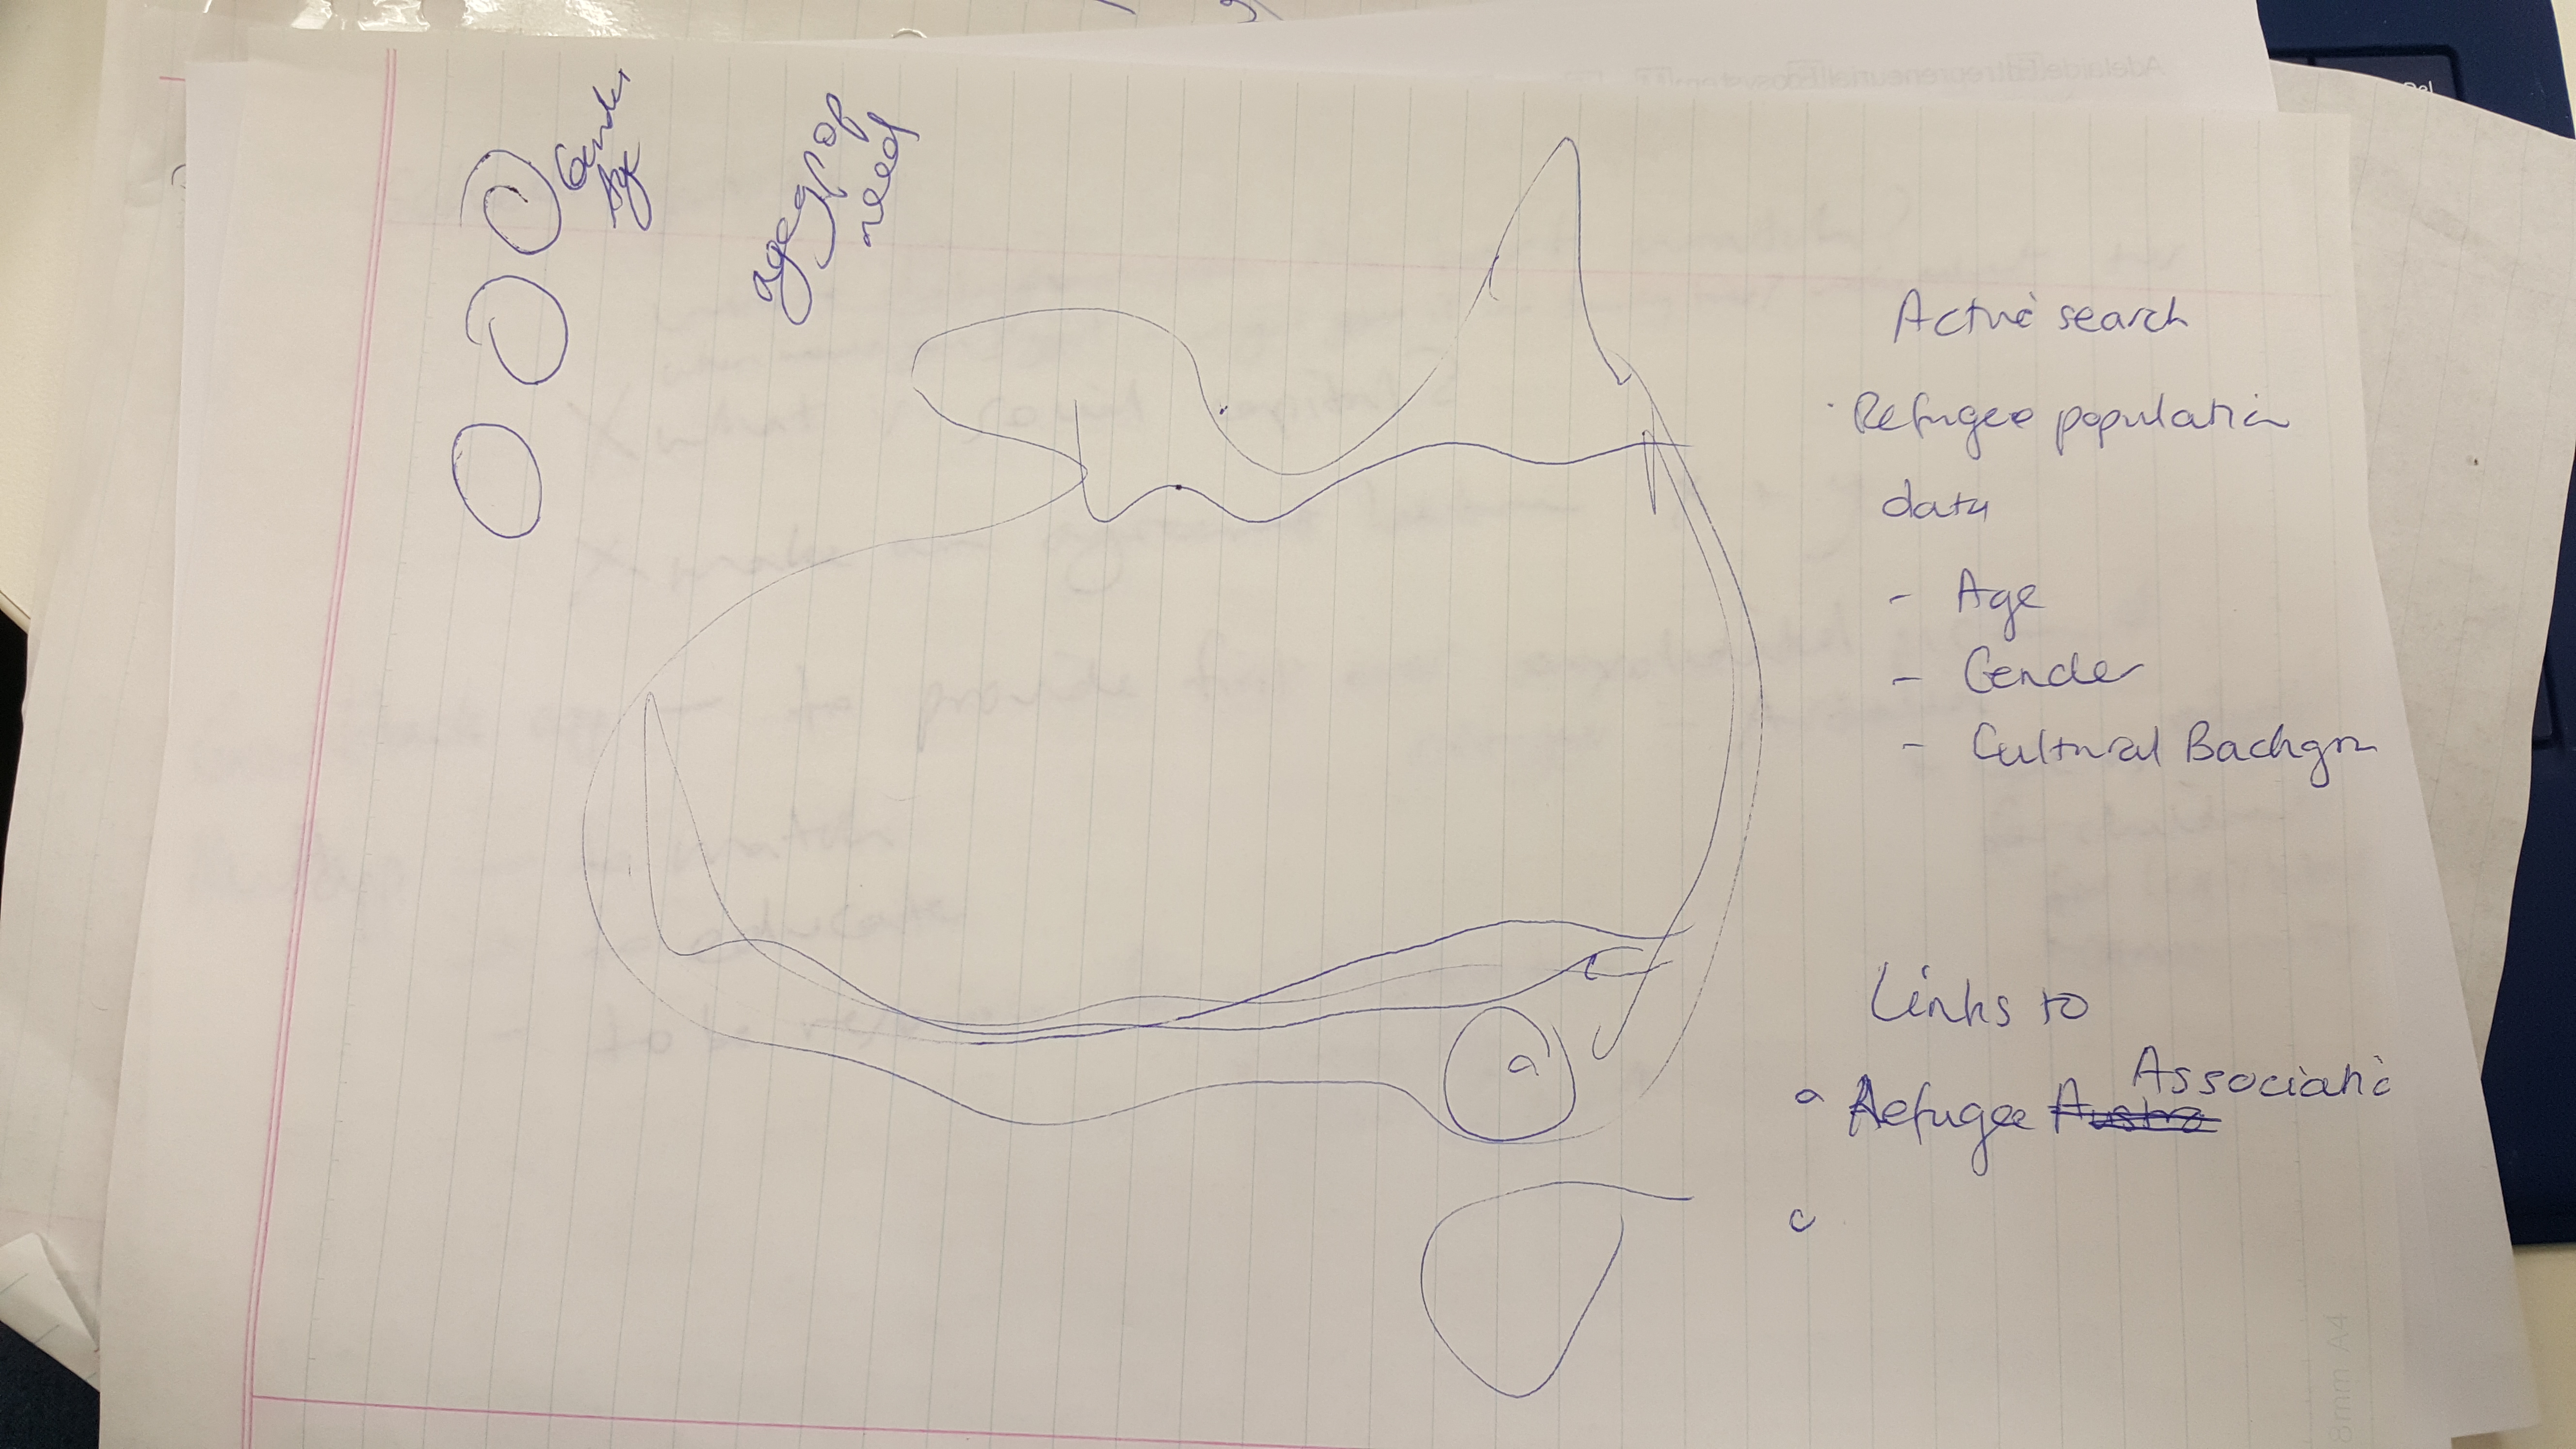 Gender
Age
agegpop
need
Active search
. Refugee population
data
- Age
- Gender
- Cultural Backgrn
Links to
a Refugee Associatic
c
a
8mm A4